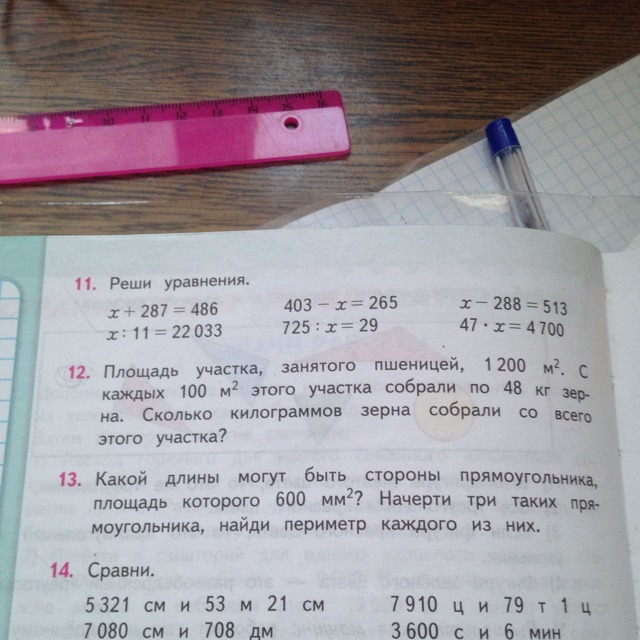 10 11 12 13 14 15 16
11. Реши уравнения.
x + 287 = 486 403 − x = 265 x − 288 = 513
x : 11 = 22 033 725 : x = 29 47 · x = 4 700
12. Площадь участка, занятого пшеницей, 1 200 м². С
каждых 100 м² этого участка собрали по 48 кг зер-
на. Сколько килограммов зерна собрали со всего
этого участка?
13. Какой длины могут быть стороны прямоугольника,
площадь которого 600 мм²? Начерти три таких пря-
моугольника, найди периметр каждого из них.
14. Сравни.
5 321 см и 53 м 21 см 7 910 ц и 79 т 1 ц
7 080 см и 708 дм 3 600 с и 6 мин